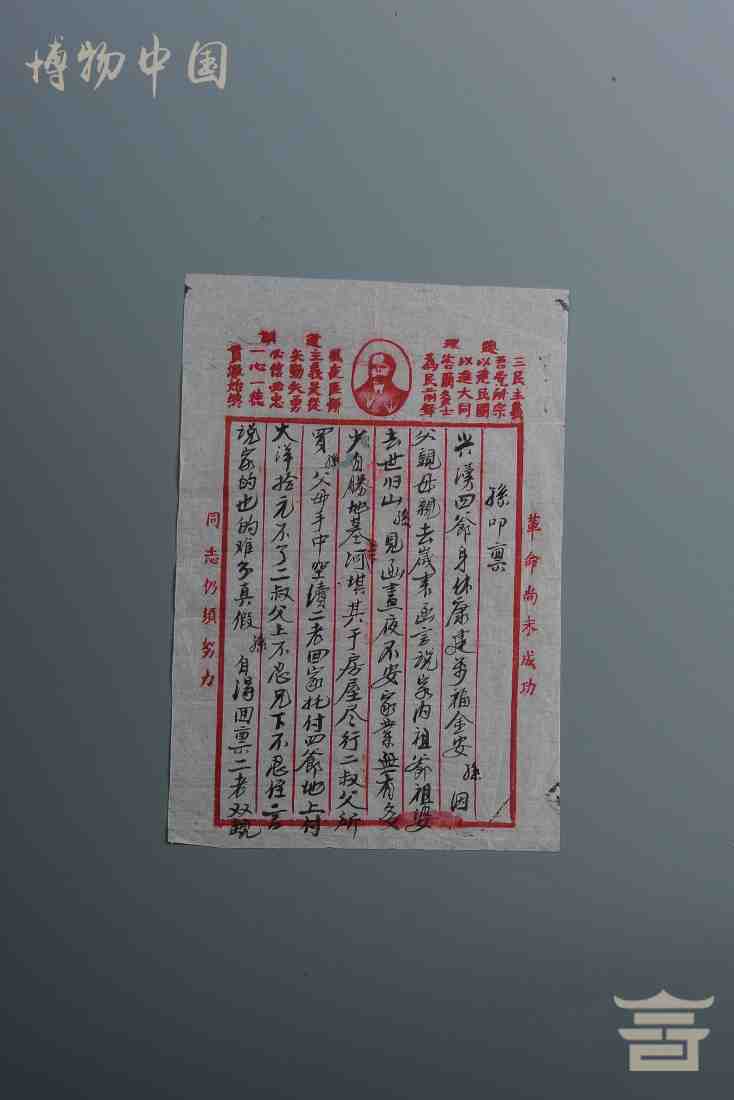 博物中国
三民主義
吾党所宗
以建民國
以進大同
咨爾多士
爲民前鋒
夙夜匪懈
主義是從
矢勤矢勇
必信必忠
一心一德
貫徹始終
總理遺訓
革命尚未成功
同志仍須努力
孫叩禀
兴漢四爺身体康建万福金安 孫因
父親母親去歲来函言说家内祖爺祖婆
去世归山 孫見函晝夜不安家業並有多
少自勝地基河垻其于房屋尽行二叔父所
買 孫父母手中空濆二老回家托付四爺地上付
大洋拾元不了二叔父上不忍兄下不忍侄言
说家的也的难分真假 孫自满回禀二老双親